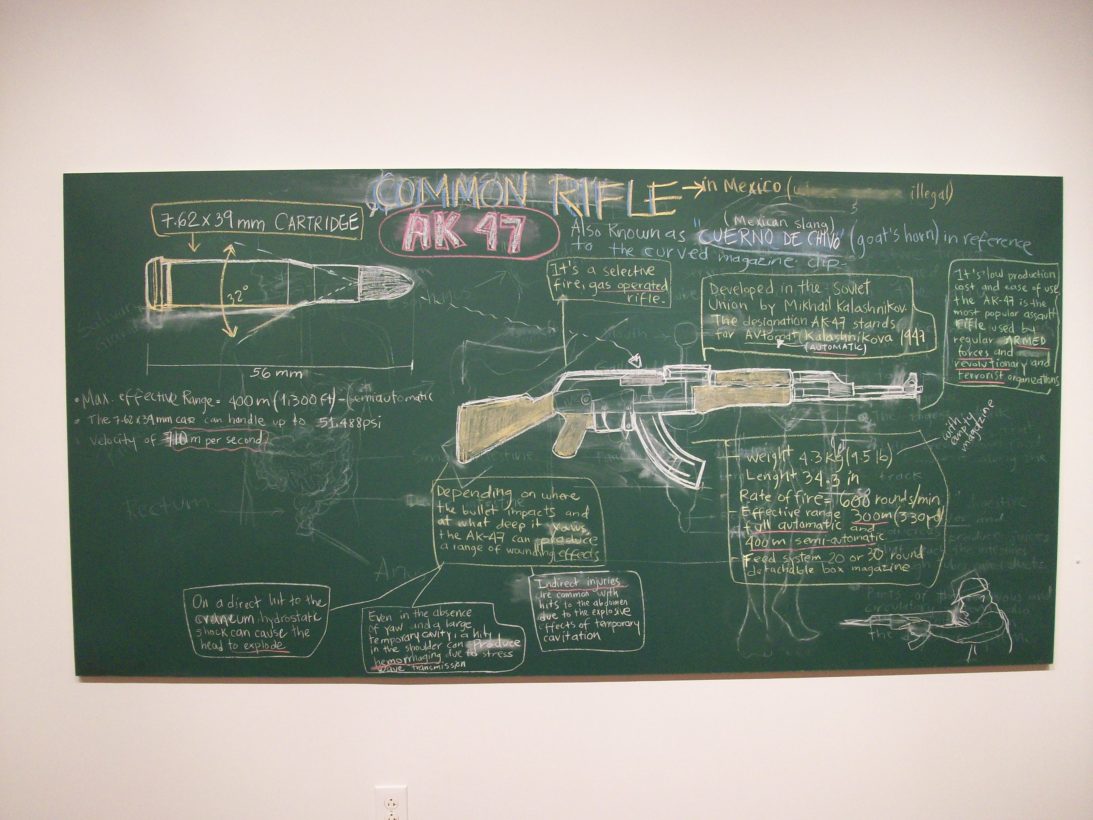 COMMON RIFLE → in Mexico (
illegal)
7.62x39 mm CARTRIDGE
AK 47
(Mexican slang)
Also Known as "CUERNO DE CHIVO" (goat's horn) in reference
to the curved magazine clip
32°
56 mm
It's a selective
fire, gas operated
rifle.
Developed in the Soviet
Union by Mikhail Kalashnikov.
The designation AK-47 stands
for Avtomat Kalashnikova 1947
(AUTOMATIC)
It's low production
cost and ease of use
the AK-47 is the
most popular assault
rifle used by
regular ARMED
forces and
revolutionary and
terrorist organizations
• Max. effective Range = 400m (1,300 ft) - semiautomatic
• The 7.62x39mm case can handle up to 51.488psi
• Velocity of 710 m per second
with
empty
magazine
- Weight 4.3 kg (9.5 lb)
- Lenght 34.3 in
Rate of fire = 600 rounds/min
- Effective range 300m (330yd)
full automatic and
400m semi-automatic
- Feed system 20 or 30 round
detachable box magazine
Depending on where
the bullet impacts and
at what deep it yaws
the AK-47 can produce
a range of wounding effects
On a direct hit to the
craneum hydrostatic
shock can cause the
head to explode
Even in the absence
of yaw and a large
temporary cavity, a hit
in the shoulder can produce
hemorrhaging due to stress
wave transmission
Indirect injuries
are common with
hits to the abdomen
due to the explosive
effects of temporary
cavitation
Rectum